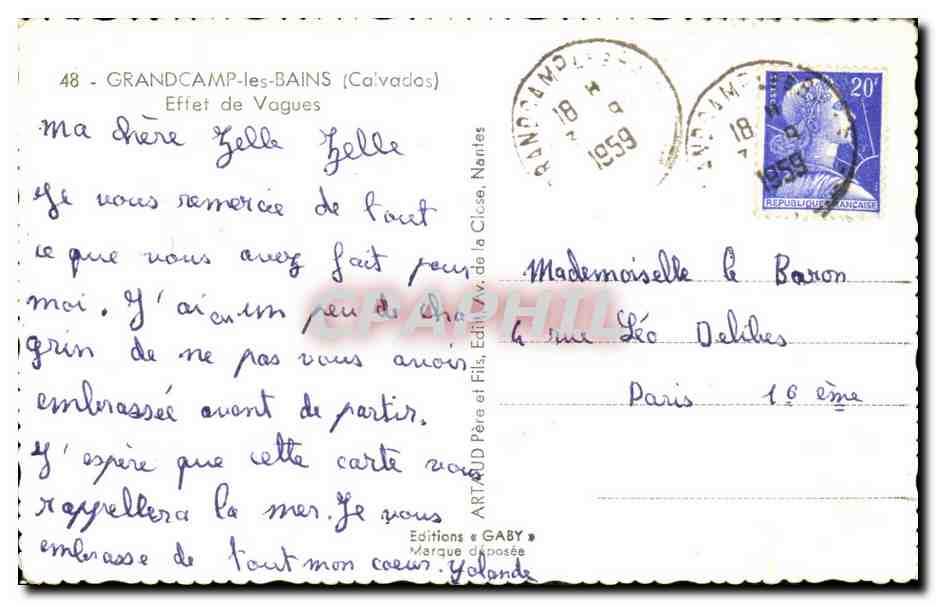 48 - GRANDCAMP-les-BAINS (Calvados)
Effet de Vagues
Ma chère Zelle Zelle
Je vous remercie de tout
ce que vous avez fait pour
moi. J'ai eu un peu de cha
grin de ne pas vous avoir
embrassée avant de partir.
J'espère que cette carte vous
rappellera la mer. Je vous
embrasse de tout mon coeur. Yolande
Editions « GABY »
Marque déposée
ARTAUD Père et Fils, Edit., Av. de la Close, Nantes
GRANDCAMP-LES-B
18 H
9
1959
RANDCAMP
18 H
9
1959
POSTES
20F
REPUBLIQUE FRANÇAISE
Mademoiselle le Baron
4 rue Léo Delibes
Paris 16 ème
CPAPHIL